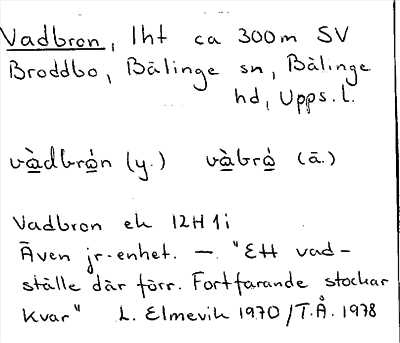 Vadbron, lht ca 300m SV
Broddbo, Bälinge sn, Bälinge
hd, Upps. l.
và̱dbrȧ̱́n (y.) và̱brȧ̱́ (ä.)
Vadbron ek 12H1i
Även jr-enhet. — "Ett vad-
ställe där förr. Fortfarande stockar
kvar" L. Elmevik 1970/T.Å. 1978